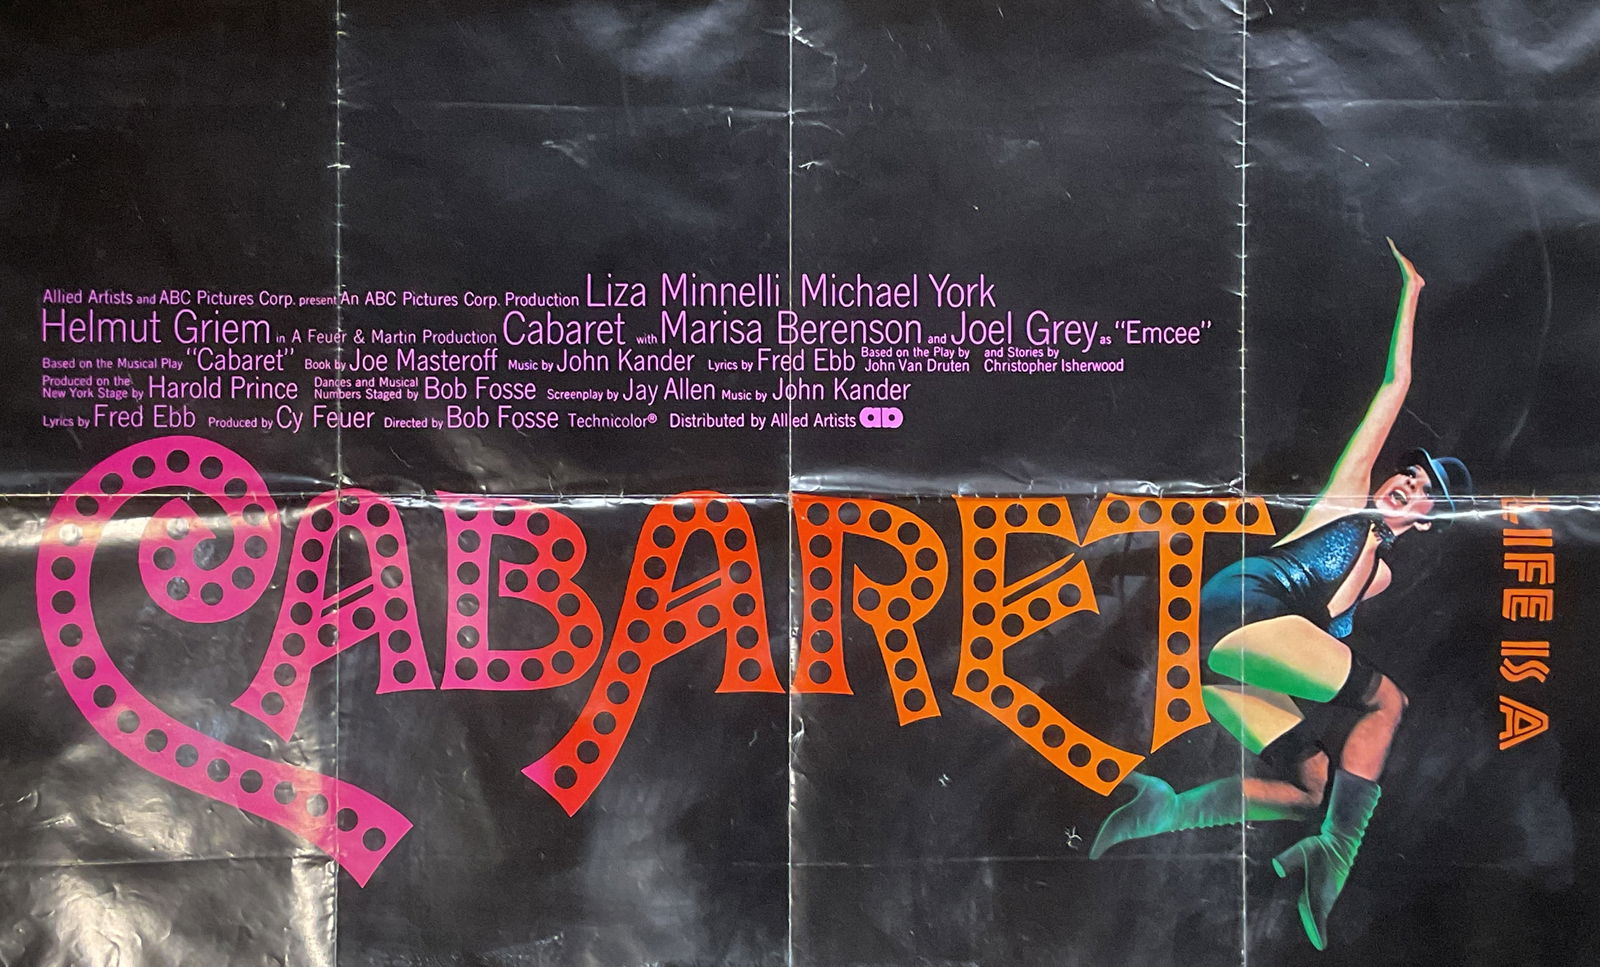 Allied Artists and ABC Pictures Corp. present An ABC Pictures Corp. Production Liza Minnelli Michael York
Helmut Griem in A Feuer & Martin Production Cabaret with Marisa Berenson and Joel Grey as "Emcee"
Based on the Musical Play "Cabaret" Book by Joe Masteroff Music by John Kander Lyrics by Fred Ebb Based on the Play by John Van Druten and Stories by Christopher Isherwood
Produced on the New York Stage by Harold Prince Dances and Musical Numbers Staged by Bob Fosse Screenplay by Jay Allen Music by John Kander
Lyrics by Fred Ebb Produced by Cy Feuer Directed by Bob Fosse Technicolor® Distributed by Allied Artists aa
CABARET
LIFE IS A